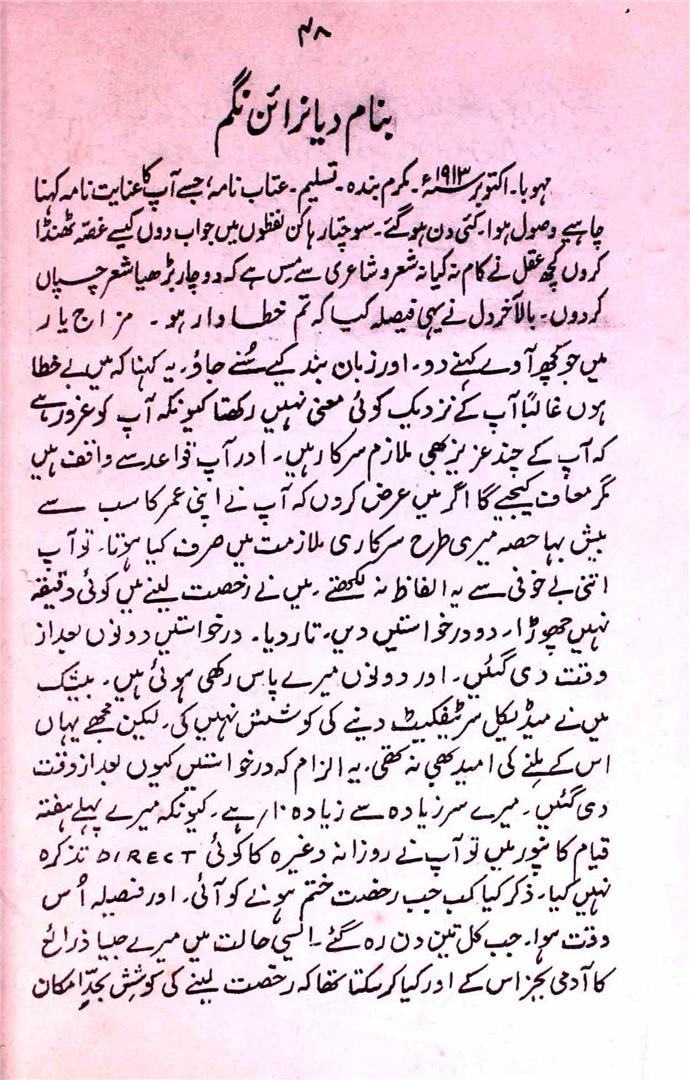 ۴۸
بنام دیا نرائن نگم
مہوبا۔ اکتوبر ۱۹۱۳ء۔ مکرم بندہ۔ تسلیم۔ عتاب نامہ، جسے آپ کا عنایت نامہ کہنا
چاہیے وصول ہوا۔ کئی دن ہو گئے۔ سوچتا رہا کن لفظوں میں جواب دوں کیسے غصّہ ٹھنڈا
کروں کچھ عقل نے کام نہ کیا نہ شعر و شاعری سے مس ہے کہ دو چار بڑھیا شعر چسپاں
کردوں۔ بالآخر دل نے یہی فیصلہ کیا کہ تم خطاوار ہو۔ مزاج یار
میں جو کچھ آوے کہنے دو۔ اور زبان بند کیے سُنے جاؤ۔ یہ کہنا کہ میں بے خطا
ہوں غالباً آپ کے نزدیک کوئی معنی نہیں رکھتا کیونکہ آپ کو غرور ہے
کہ آپ کے چند عزیز بھی ملازم سرکار ہیں۔ اور آپ قواعد سے واقف ہیں
مگر معاف کیجیے گا اگر میں عرض کروں کہ آپ نے اپنی عمر کا سب سے
بیش بہا حصہ میری طرح سرکاری ملازمت میں صرف کیا ہوتا۔ تو آپ
اتنی بے خوفی سے یہ الفاظ نہ لکھتے۔ میں نے رخصت لینے میں کوئی دقیقہ
نہیں چھوڑا۔ دو درخواستیں دیں۔ تار دیا۔ درخواستیں دونوں بعد از
وقت دی گئیں۔ اور دونوں میرے پاس رکھی ہوئی ہیں۔ بیشک
میں نے میڈیکل سرٹیفکیٹ دینے کی کوشش نہیں کی۔ لیکن مجھے یہاں
اس کے ملنے کی امید بھی نہ تھی۔ یہ الزام کہ درخواستیں کیوں بعد از وقت
دی گئیں۔ میرے سر زیادہ سے زیادہ ۱۰/ ہے۔ کیونکہ میرے پہلے ہفتہ
قیام کانپور میں تو آپ نے روزانہ وغیرہ کا کوئی DIRECT تذکرہ
نہیں کیا۔ ذکر کیا کب جب رخصت ختم ہونے کو آئی۔ اور فیصلہ اُس
وقت ہوا۔ جب کل تین دن رہ گئے۔ ایسی حالت میں میرے جیسا ذرائع
کا آدمی بجز اس کے اور کیا کر سکتا تھا کہ رخصت لینے کی کوشش بحدِّ امکان